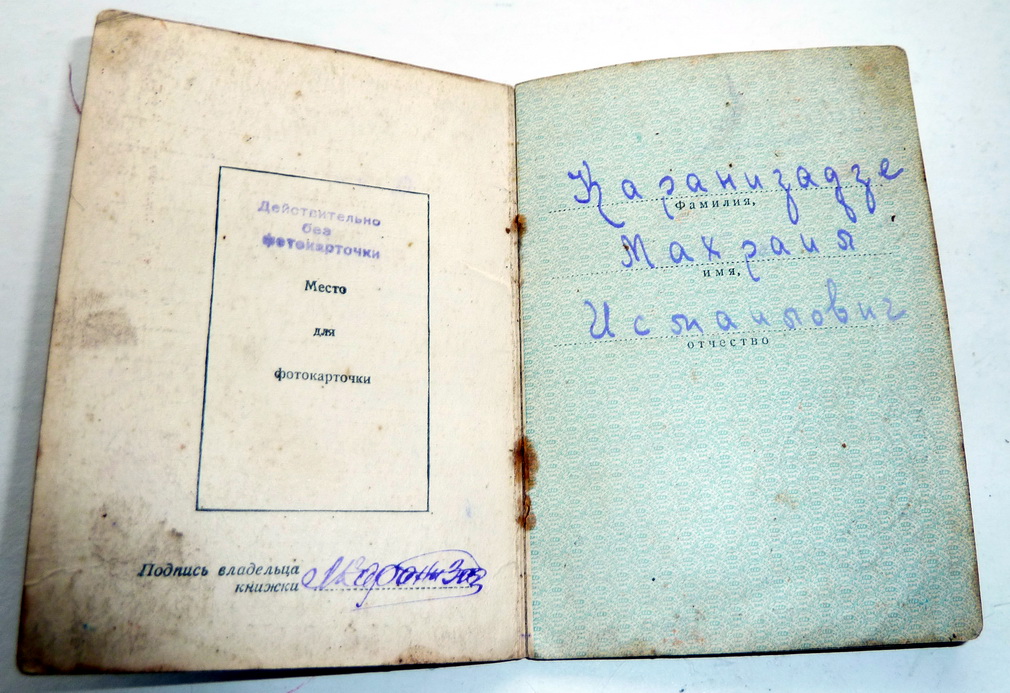 Действительно
без
фотокарточки
Место
для
фотокарточки
Подпись владельца
книжки
Каранизадзе
Фамилия,
имя,
Исмаилович
отчество